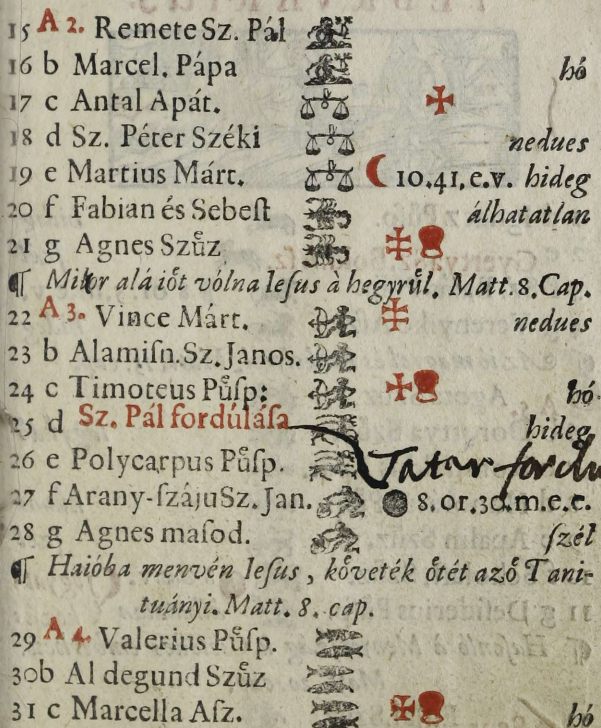 15 A 2. Remete Sz. Pál
16 b Marcel. Pápa hó
17 c Antal Apát.
18 d Sz. Péter Széki nedues
19 e Martius Márt. 10.41.e.v. hideg
20 f Fabian és Sebeſt álhatatlan
21 g Agnes Szůz
¶ Mikor alá iőt vólna Ieſus à hegyrűl. Matt. 8. Cap.
22 A 3. Vince Márt. nedues
23 b Alamiſn. Sz. Janos.
24 c Timoteus Půſp: hó
25 d Sz. Pál fordúláſa hideg
26 e Polycarpus Půſp. Tatar
27 f Arany-ſzáju Sz. Jan. 8.or.30.m.e.e.
28 g Agnes maſod. ſzél
¶ Haióba menvén Ieſus, kőveték őtét aző Tani-
tuányi. Matt. 8. cap.
29 A 4. Valerius Půſp.
30 b Aldegund Szůz
31 c Marcella Aſz. hó